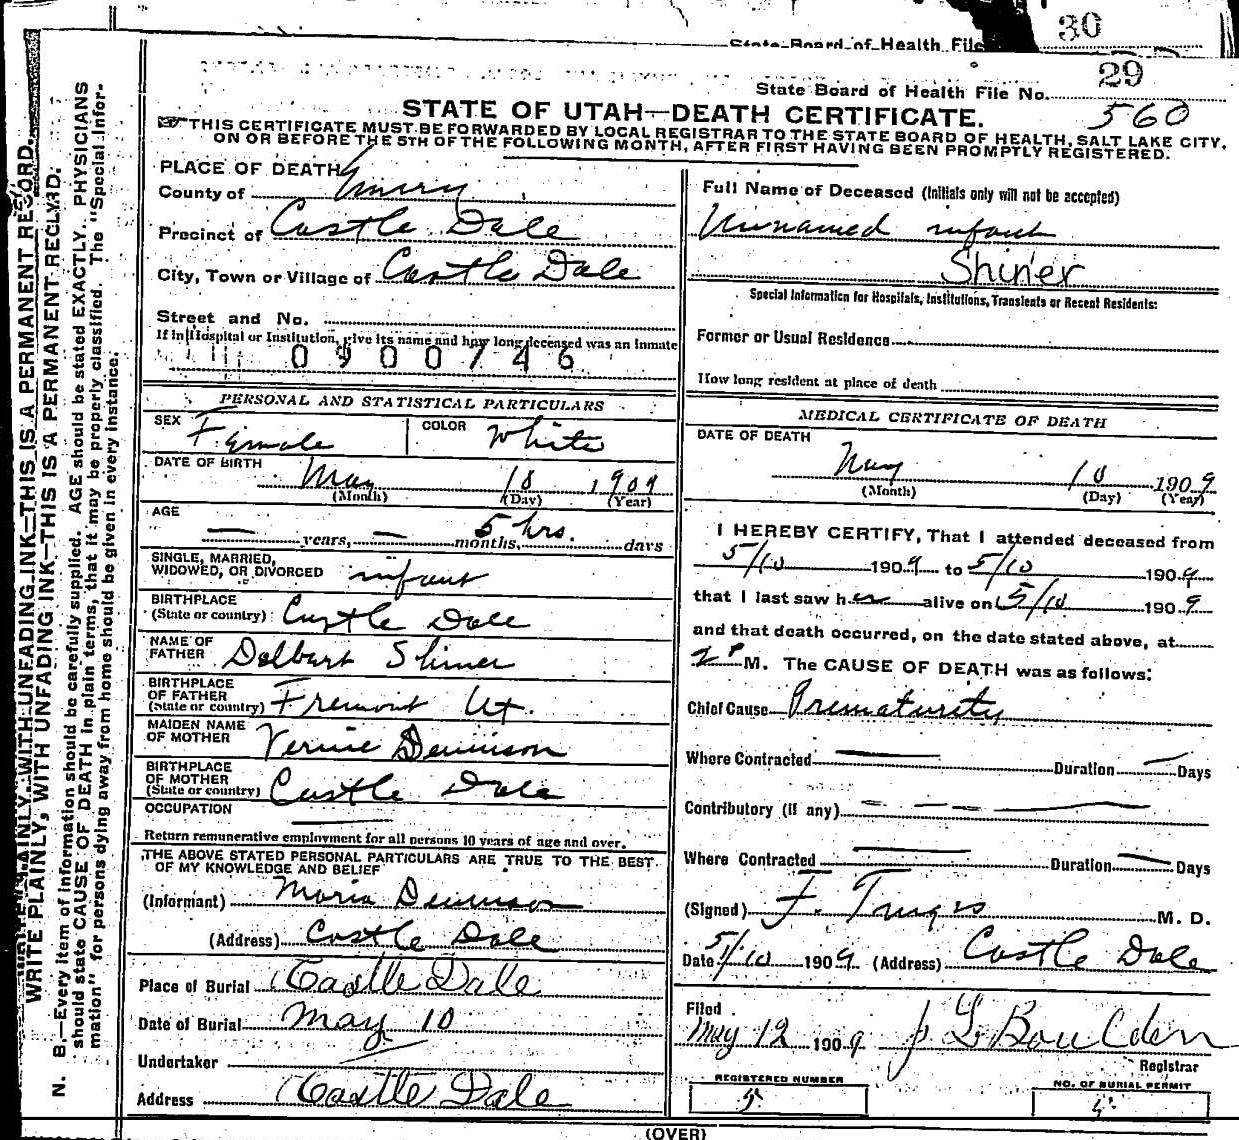 30
State Board of Health File
State Board of Health File No. 29
560
STATE OF UTAH—DEATH CERTIFICATE.
THIS CERTIFICATE MUST BE FORWARDED BY LOCAL REGISTRAR TO THE STATE BOARD OF HEALTH, SALT LAKE CITY,
ON OR BEFORE THE 5TH OF THE FOLLOWING MONTH, AFTER FIRST HAVING BEEN PROMPTLY REGISTERED.
WRITE PLAINLY, WITH UNFADING INK—THIS IS A PERMANENT RECORD.
N. B.—Every item of information should be carefully supplied. AGE should be stated EXACTLY. PHYSICIANS
should state CAUSE OF DEATH in plain terms, that it may be properly classified. The "Special Infor-
mation" for persons dying away from home should be given in every instance.
PLACE OF DEATH
County of Emery
Precinct of Castle Dale
City, Town or Village of Castle Dale
Street and No.
If in Hospital or Institution, give its name and how long deceased was an inmate
0900746
PERSONAL AND STATISTICAL PARTICULARS
SEX Female COLOR White
DATE OF BIRTH May 10 1909
(Month) (Day) (Year)
AGE
— years, — months, 5 hrs. days
SINGLE, MARRIED,
WIDOWED, OR DIVORCED infant
BIRTHPLACE
(State or country) Castle Dale
NAME OF
FATHER Delbert Shiner
BIRTHPLACE
OF FATHER
(State or country) Fremont Ut.
MAIDEN NAME
OF MOTHER Vernie Dennison
BIRTHPLACE
OF MOTHER
(State or country) Castle Dale
OCCUPATION
Return remunerative employment for all persons 10 years of age and over.
THE ABOVE STATED PERSONAL PARTICULARS ARE TRUE TO THE BEST
OF MY KNOWLEDGE AND BELIEF
(Informant) Maria Dennison
(Address) Castle Dale
Place of Burial Castle Dale
Date of Burial May 10
Undertaker
Address Castle Dale
Full Name of Deceased (Initials only will not be accepted)
Unnamed infant
Shiner
Special Information for Hospitals, Institutions, Transients or Recent Residents:
Former or Usual Residence
How long resident at place of death
MEDICAL CERTIFICATE OF DEATH
DATE OF DEATH
May 10 1909
(Month) (Day) (Year)
I HEREBY CERTIFY, That I attended deceased from
5/10 1909 to 5/10 1909
that I last saw her alive on 5/10 1909
and that death occurred, on the date stated above, at
2 P M. The CAUSE OF DEATH was as follows:
Chief Cause Prematurity
Where Contracted — Duration — Days
Contributory (if any)
Where Contracted — Duration — Days
(Signed) F. M. D.
Date 5/10 1909 (Address) Castle Dale
Filed
May 12 1909 J L Boulden
Registrar
REGISTERED NUMBER
5
NO. OF BURIAL PERMIT
5
(OVER)